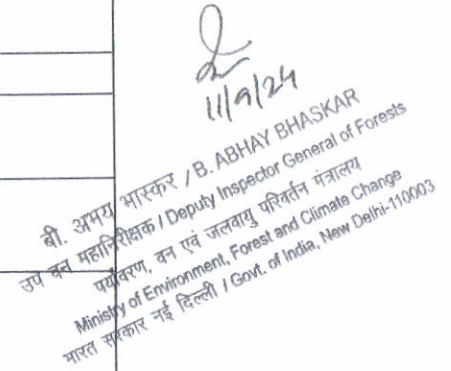 11/9/24
बी. अभय भास्कर / B. ABHAY BHASKAR
उप वन महानिरीक्षक / Deputy Inspector General of Forests
पर्यावरण, वन एवं जलवायु परिवर्तन मंत्रालय
Ministry of Environment, Forest and Climate Change
भारत सरकार नई दिल्ली / Govt. of India, New Delhi-110003